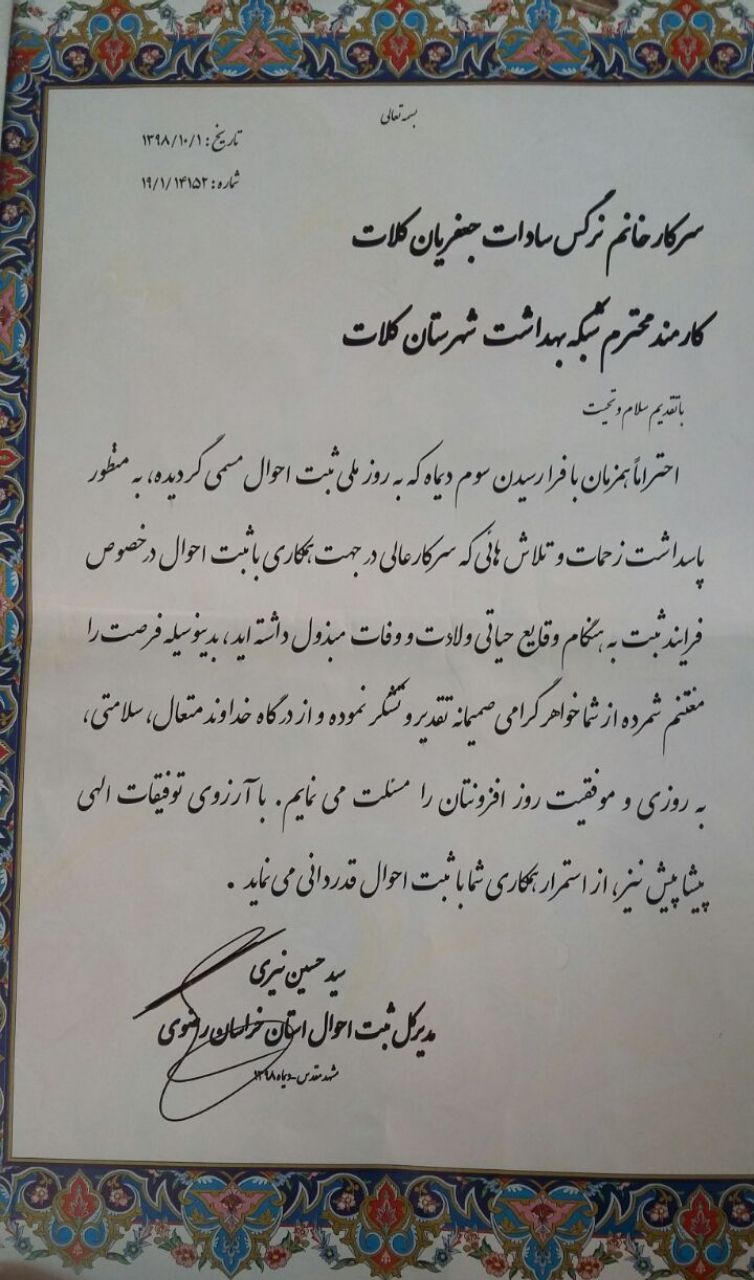 بسمه تعالی
تاریخ: ۱۳۹۸/۱۰/۱
شماره: ۱۹/۱/۱۴۱۵۲
سرکار خانم نرگس سادات جعفریان کلات
کارمند محترم شبکه بهداشت شهرستان کلات
با تقدیم سلام و تحیت
احتراماً همزمان با فرا رسیدن سوم دیماه که به روز ملی ثبت احوال مسمی گردیده، به منظور
پاسداشت زحمات و تلاش هائی که سرکار عالی در جهت همکاری با ثبت احوال در خصوص
فرایند ثبت به هنگام وقایع حیاتی ولادت و وفات مبذول داشته اید، بدینوسیله فرصت را
مغتنم شمرده از شما خواهر گرامی صمیمانه تقدیر و تشکر نموده و از درگاه خداوند متعال، سلامتی،
به روزی و موفقیت روز افزونتان را مسئلت می نمایم. با آرزوی توفیقات الهی
پیشاپیش نیز، از استمرار همکاری شما با ثبت احوال قدردانی می نماید .
سید حسین نیری
مدیرکل ثبت احوال استان خراسان رضوی
مشهد مقدس - دیماه ۱۳۹۸